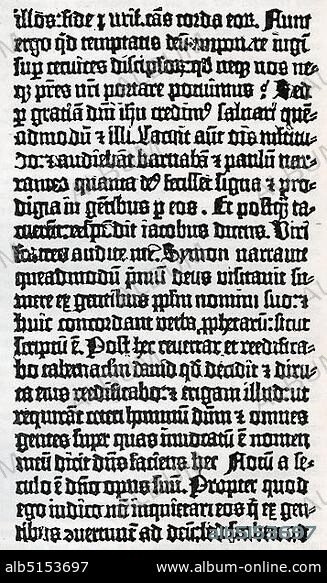 illos: fide purificãs corda eoꝝ. Nunc
ergo qd̃ temptatis deũ imponere iugũ
sup̱ cervices discipuloꝝ: qd̃ neqꝫ nos ne⸗
qꝫ p̃res nr̃i portare potuimus? Sed
ꝑ gratiã dñi ihũ credimꝰ salvari quē⸗
admodũ ⁊ illi. Tacuit aũt oīs multitu⸗
do: ⁊ audiebãt barnabã ⁊ paulũ nar⸗
rantes quanta deꝰ fecisset signa ⁊ pro⸗
digia in gētibus ꝑ eos. Et postqꝫ ta⸗
cuerũt: respõdit iacobus dicens. Viri
fratres audite me. Symon narravit
queadmodũ primũ deus visitavit su⸗
mere ex gentibus pplm̃ nomini suo: ⁊
huic concordant verba ꝓphetarũ: sicut
scriptũ ē. Post hec revertar et reedifica⸗
bo tabernaclm̃ david qd̃ decidit ⁊ diru⸗
ta eius reedificabo: ⁊ erigam illud: ut
requirãt ceteri hominũ dñm ⁊ omnes
gentes super quas invocatũ ē nomen
meũ dicit dñs faciens hec. Notũ a se⸗
culo ē dño opus suũ. Propter quod
ego iudico nõ inquietari eos q̃ ex gen⸗
tibus ꝯvertunt̃ ad deũ: sed
alb5153697
www.album-online.com